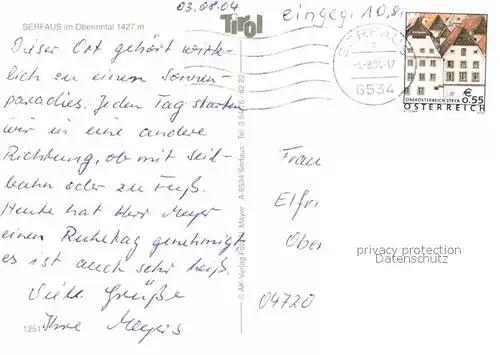 SERFAUS im Oberinntal 1427 m
03.08.04
Tirol
eingeg. 10.8.
Dieser Ort gehört wirk-
lich zu einem Sonnen-
paradies. Jeden Tag starten
wir in eine andere
Richtung, ob mit Seil-
bahn oder zu Fuß.
Heute hat Herr Meyer
einen Ruhetag genehmigt
es ist auch sehr heiß.
Viele Grüße
Ihre Meyers
1251
© AK-Verlag Foto Mayer A 6534 Serfaus Tel. 0 54 76 / 62 22
SERFAUS
6534
€ 0,55
OBERÖSTERREICH STEYR
ÖSTERREICH
Frau
Elfri
Ober
privacy protection
Datenschutz
04720